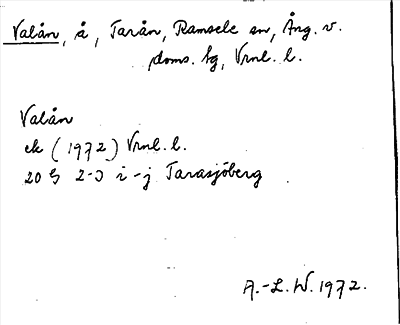 Valån, å, Tarån, Ramsele sn, Ång. v.
doms. bg, Vrnl. l.
Valån
ek (1972) Vrnl. l.
20 G 2-3 i-j Tarasjöberg
A.-L. W. 1972.